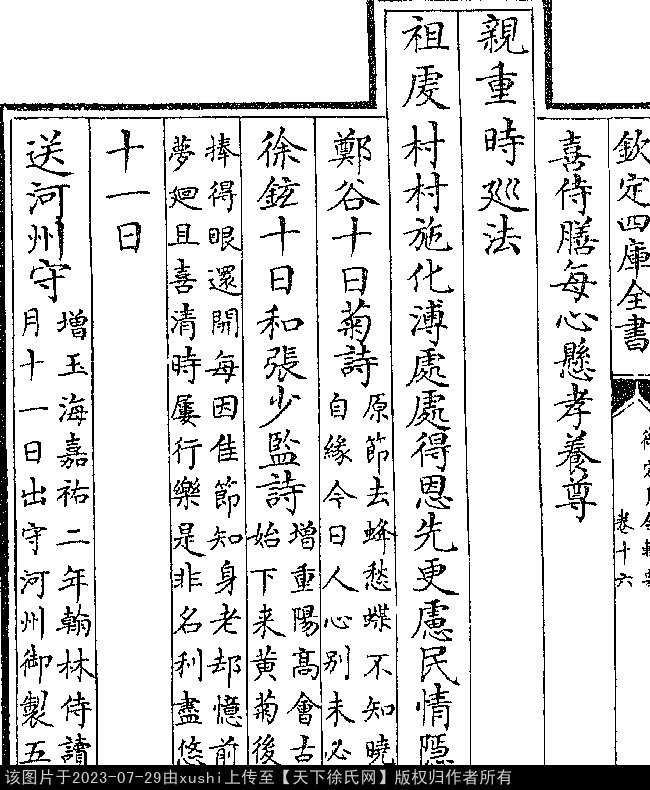 欽定四庫全書
卷十六
喜侍膳每心懸孝養尊
親重時廵法
祖䖍村村施化溥處處得恩先更慮民情隱
鄭谷十日菊詩
原節去蜂愁蝶不知曉
自緣今日人心別未必
徐鉉十日和張少監詩
增重陽高會古
始下來黄菊後
捧得眼還開每因佳節知身老却憶前
夢廻且喜清時屢行樂是非名利盡悠
十一日
送河州守
增玉海嘉祐二年翰林侍讀
月十一日出守河州御製五
该图片于2023-07-29由xushi上传至【天下徐氏网】版权归作者所有